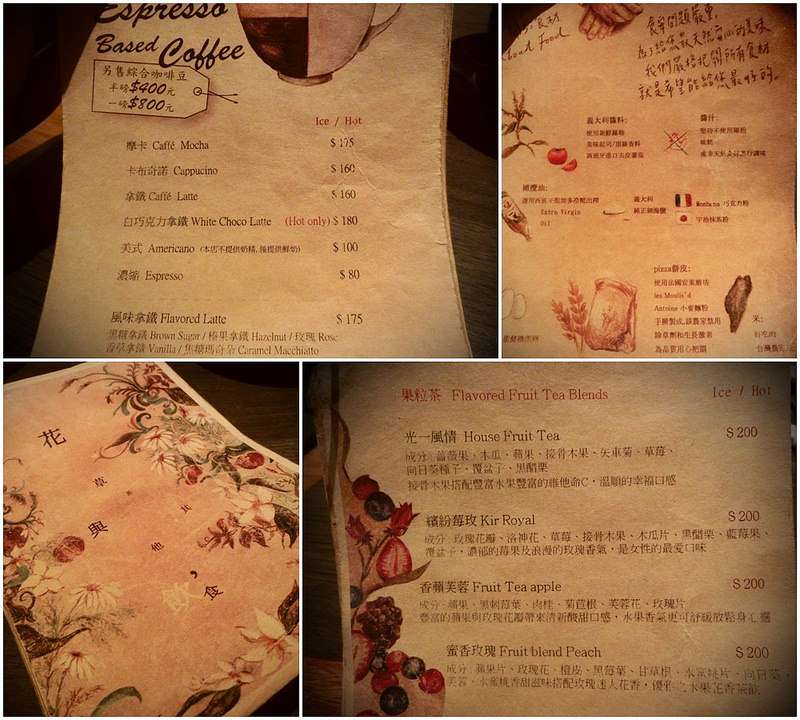 Espresso
Based Coffee
另售綜合咖啡豆
半磅$400元
一磅$800元
Ice / Hot
摩卡 Caffé Mocha $ 175
卡布奇諾 Cappucino $ 160
拿鐵 Caffé Latte $ 160
白巧克力拿鐵 White Choco Latte (Hot only) $ 180
美式 Americano (本店不提供奶精,僅提供鮮奶) $ 100
濃縮 Espresso $ 80
風味拿鐵 Flavored Latte $ 175
黑糖拿鐵 Brown Sugar / 榛果拿鐵 Hazelnut / 玫瑰 Rose
香草拿鐵 Vanilla / 焦糖瑪奇朵 Caramel Macchiato
食材
About Food
食安問題嚴重,
為了給您最天然安心的美味
我們嚴格把關所有食材
就是希望能給您最好的。
義大利醬料:
使用新鮮羅勒
美味起司/頂級香料
西班牙進口去皮蕃茄
醬汁:
堅持不使用雞粉
味精
橄欖油:
選用西班牙
Extra Virgin
Oil
義大利
純正細海鹽
Monbana 巧克力粉
宇治抹茶粉
pizza餅皮:
使用法國安東磨坊
les Moulis'd
Antoine 小麥麵粉
手擀製成,該農家禁用
除草劑和生長激素
為品質用心把關
花
草
與
其
他
,
食
果粒茶 Flavored Fruit Tea Blends Ice / Hot
光一風情 House Fruit Tea $ 200
成分 : 薔薇果、木瓜、蘋果、接骨木果、矢車菊、草莓、
向日葵種子、覆盆子、黑醋栗
接骨木果搭配豐富水果豐富的維他命C,溫順的幸福口感
繽紛莓玫 Kir Royal $ 200
成分 : 玫瑰花瓣、洛神花、草莓、接骨木果、木瓜片、黑醋栗、藍莓果、
覆盆子、濃郁的莓果及浪漫的玫瑰香氣,是女性的最愛口味
香蘋芙蓉 Fruit Tea apple $ 200
成分:蘋果、黑刺莓葉、肉桂、菊苣根、芙蓉花、玫瑰片
豐富的蘋果與玫瑰花瓣帶來清新酸甜口感,水果香氣更可舒緩放鬆身心靈
蜜香玫瑰 Fruit blend Peach $ 200
成分 : 蘋果片、玫瑰花、橙皮、黑莓葉、甘草根、水蜜桃片、向日葵、
芙蓉、水蜜桃香甜滋味搭配玫瑰迷人花香,優雅之水果花香茶飲